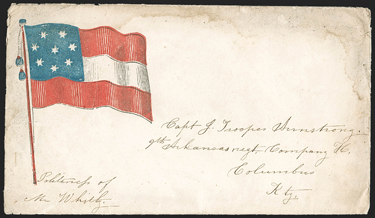 Capt J. Trooper Armstrong.
9th Arkansas regt Company H.
Columbus
Kty.
Politeness of
Mr Whitly